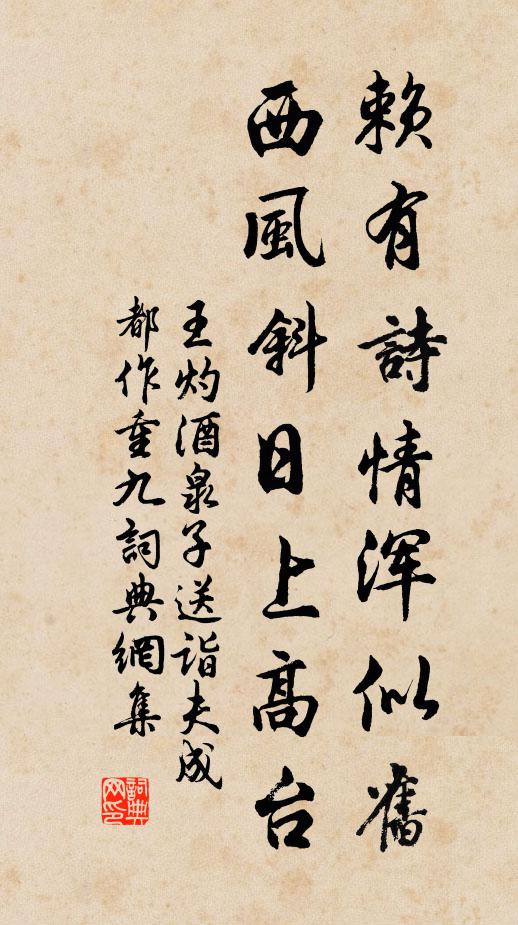 赖有詩情浑似舊
西風斜日上高台
王灼酒泉子送詣夫成
都作重九詞典網集
詞典网印